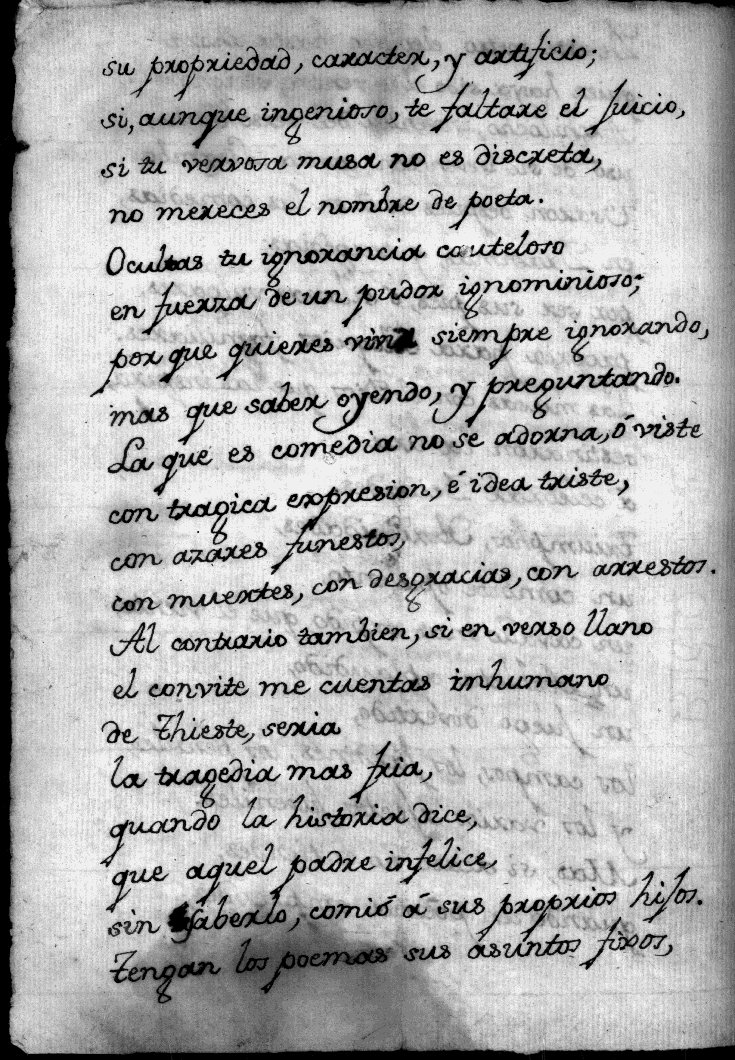 su propriedad, caracter, y artificio;
si, aunque ingenioso, te faltare el juicio,
si tu vervosa musa no es discreta,
no mereces el nombre de poeta.
Ocultas tu ignorancia cauteloso
en fuerza de un pudor ignominioso;
por que quieres siempre ignorando,
mas que saber oyendo, y preguntando.
La que es comedia no se adorna, ó viste
con tragica expresion, é idea triste,
con azares funestos,
con muertes, con desgracias, con arrestos.
Al contrario tambien, si en verso llano
el convite me cuentas inhumano
de Thieste, seria
la tragedia mas fria,
quando la historia dice,
que aquel padre infelice,
sin saberlo, comió á sus proprios hijos.
Tengan los poemas sus asuntos fixos,